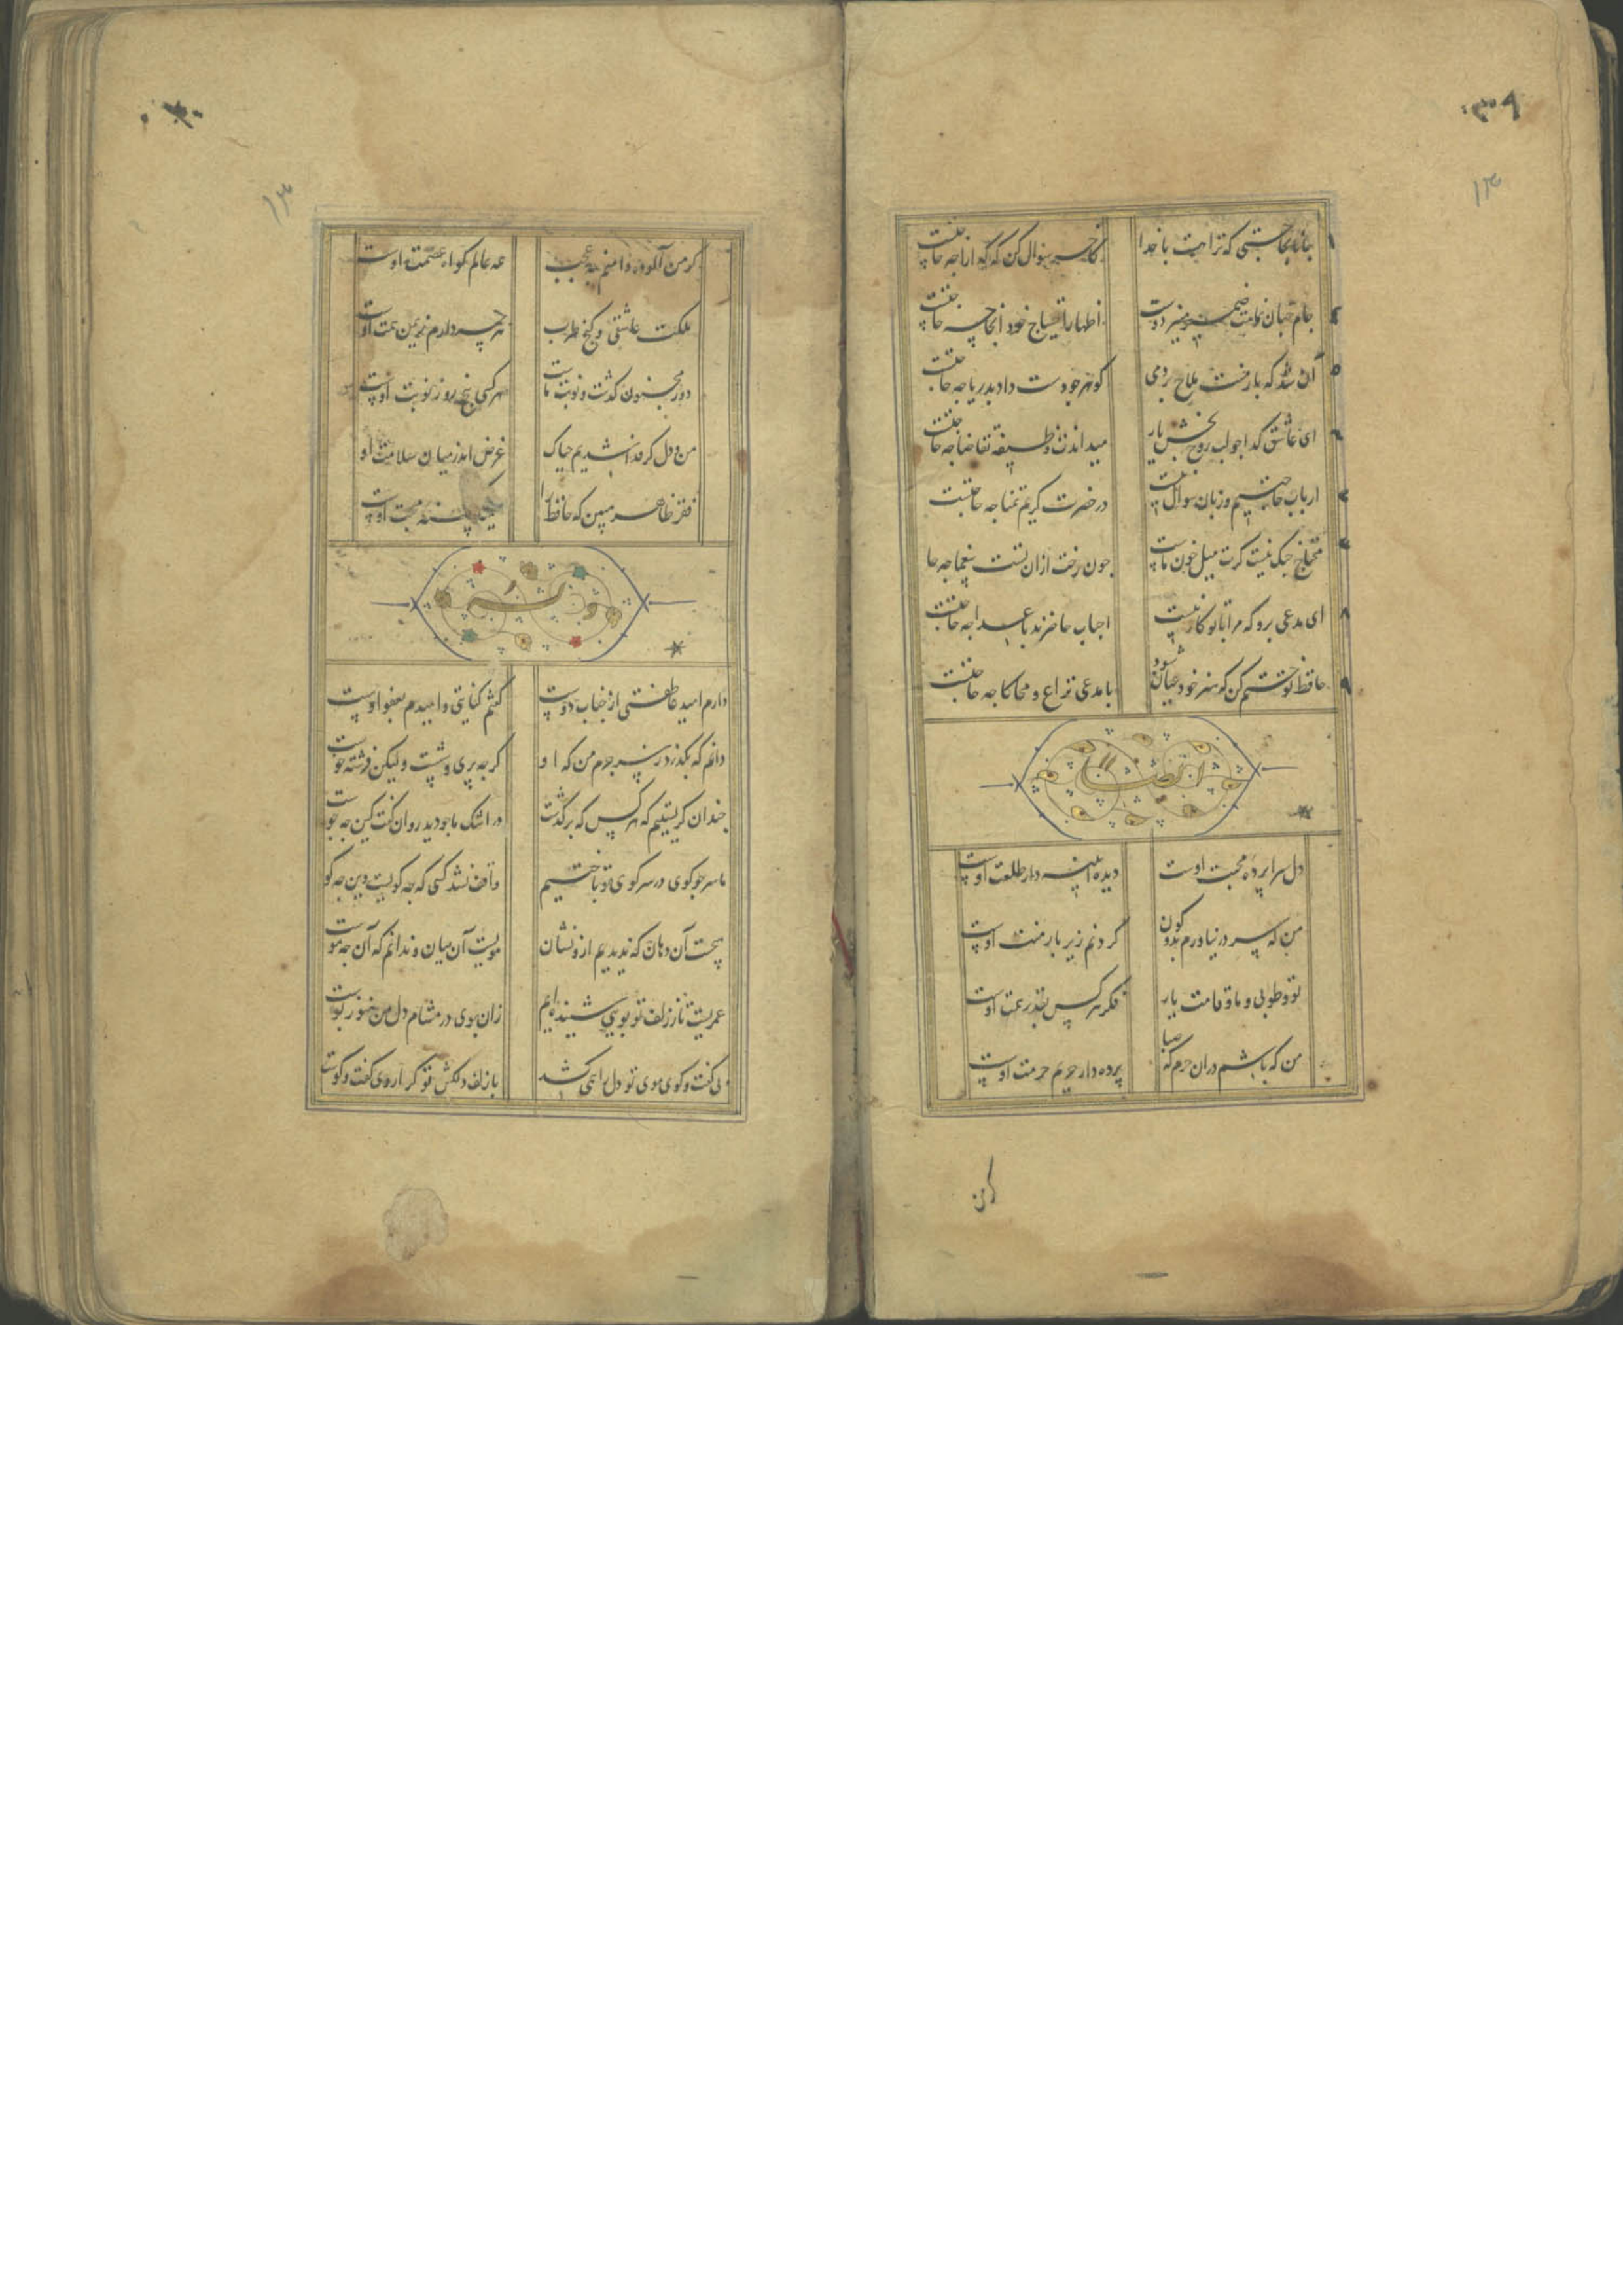 ۱۳
جانا بحاجتی که ترا هست با خدا کاخر سؤال کن که گدا را چه حاجتست
جام جهان نماست ضمیر منیر دوست اظهار احتیاج خود آنجا چه حاجتست
آن شد که بار منت ملاح بردمی گوهر چو دست داد بدریا چه حاجتست
ای عاشق گدا چو لب روح بخش یار میداندت وظیفه تقاضا چه حاجتست
ارباب حاجتیم و زبان سؤال نیست در حضرت کریم تمنا چه حاجتست
محتاج جنگ نیست گرت میل خون ماست چون رخت ازان تست بیغما چه حا
ای مدعی برو که مرا با تو کار نیست احباب حاضرند باعدا چه حاجتست
حافظ تو ختم کن که هنر خود عیان شود با مدعی نزاع و محاکا چه حاجتست
دل سراپرده محبت اوست دیده آیینه دار طلعت اوست
من که سر در نیاورم بدو کون گردنم زیر بار منت اوست
تو و طوبی و ما و قامت یار فکر هر کس بقدر همت اوست
من که باشم دران حرم که صبا پرده دار حریم حرمت اوست
گر من
۱۳
گر من آلوده دامنم چه عجب همه عالم گواه عصمت اوست
ملکت عاشقی و گنج طرب هر چه دارم ز یمن همت اوست
دور مجنون گذشت و نوبت ماست هر کسی پنج روز نوبت اوست
من و دل گر فدا شدیم چه باک غرض اندر میان سلامت او
فقر ظاهر مبین که حافظ را سینه گنجینه محبت اوست
وله
دارم امید عاطفتی از جناب دوست کردم جنایتی و امیدم بعفو اوست
دانم که بگذرد ز سر جرم من که او گر چه پری وشست ولیکن فرشته خوست
چندان گریستیم که هر کس که برگذشت در اشک ما چو دید روان گفت کین چه جوست
ما سر چو گوی در سر کوی تو باختیم واقف نشد کسی که چه گویست و این چه کو
هیچست آن دهان که ندیدیم ازو نشان مویست آن میان و ندانم که آن چه موست
عمریست تا ز زلف تو بویی شنیده‌ایم زان بوی در مشام دل من هنوز بوست
بی گفت و گوی موی تو دل را همی کشد با زلف دلکش تو کرا روی گفت و گوست